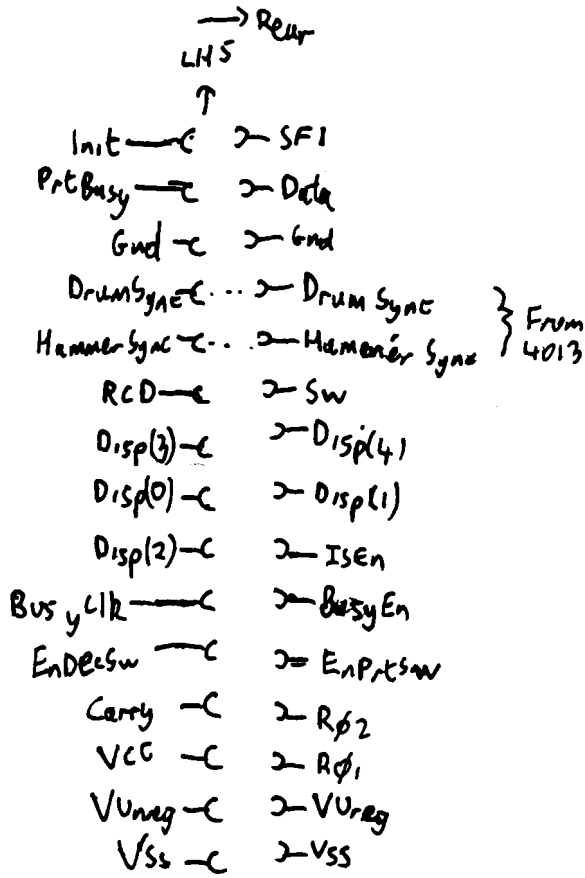 → Rear
LHS
↑
Init SFI
PrtBusy Data
Gnd Gnd
DrumSync ... Drum Sync
HammerSync ... Hammer Sync } From 4013
RCD Sw
Disp(3) Disp(4)
Disp(0) Disp(1)
Disp(2) IsEn
BusyClk BusyEn
EnDecSw EnPrtSw
Carry Rφ2
VCC Rφ1
VUnreg VUreg
VSs VSS